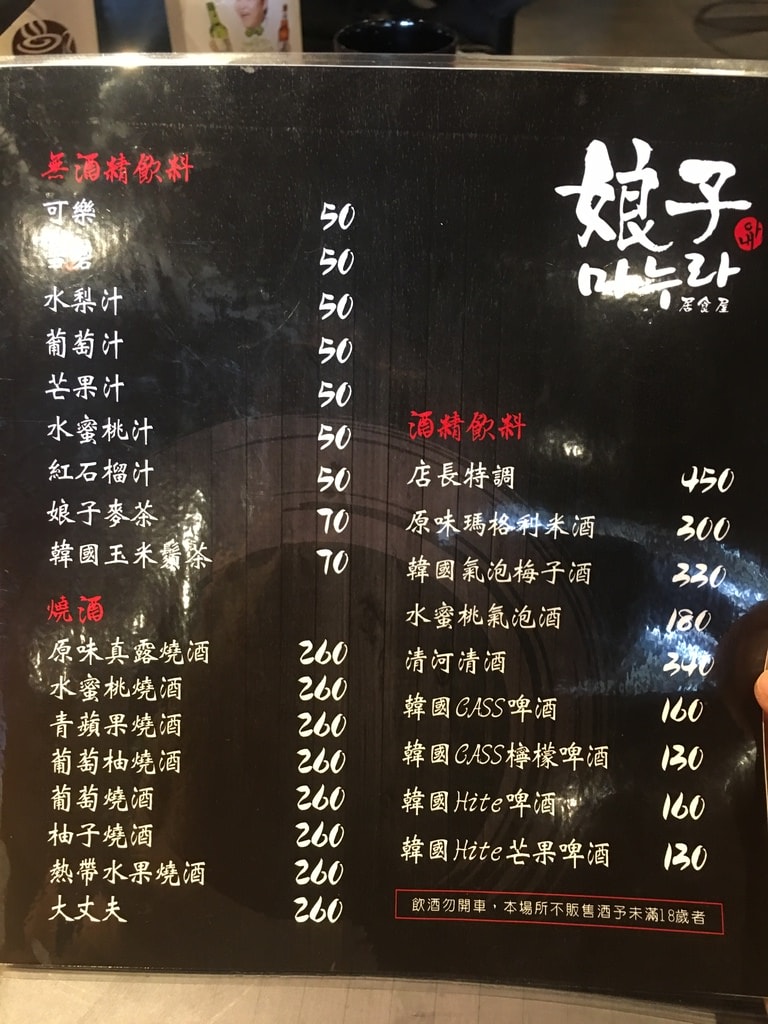 無酒精飲料
可樂 50
50
水梨汁 50
葡萄汁 50
芒果汁 50
水蜜桃汁 50
紅石榴汁 50
娘子麥茶 70
韓國玉米鬚茶 70
燒酒
原味真露燒酒 260
水蜜桃燒酒 260
青蘋果燒酒 260
葡萄柚燒酒 260
葡萄燒酒 260
柚子燒酒 260
熱帶水果燒酒 260
大丈夫 260
娘子
마누라
居食屋
酒精飲料
店長特調 450
原味瑪格利米酒 300
韓國氣泡梅子酒 330
水蜜桃氣泡酒 180
清河清酒 340
韓國CASS啤酒 160
韓國CASS檸檬啤酒 130
韓國Hite啤酒 160
韓國Hite芒果啤酒 130
飲酒勿開車，本場所不販售酒予未滿18歲者